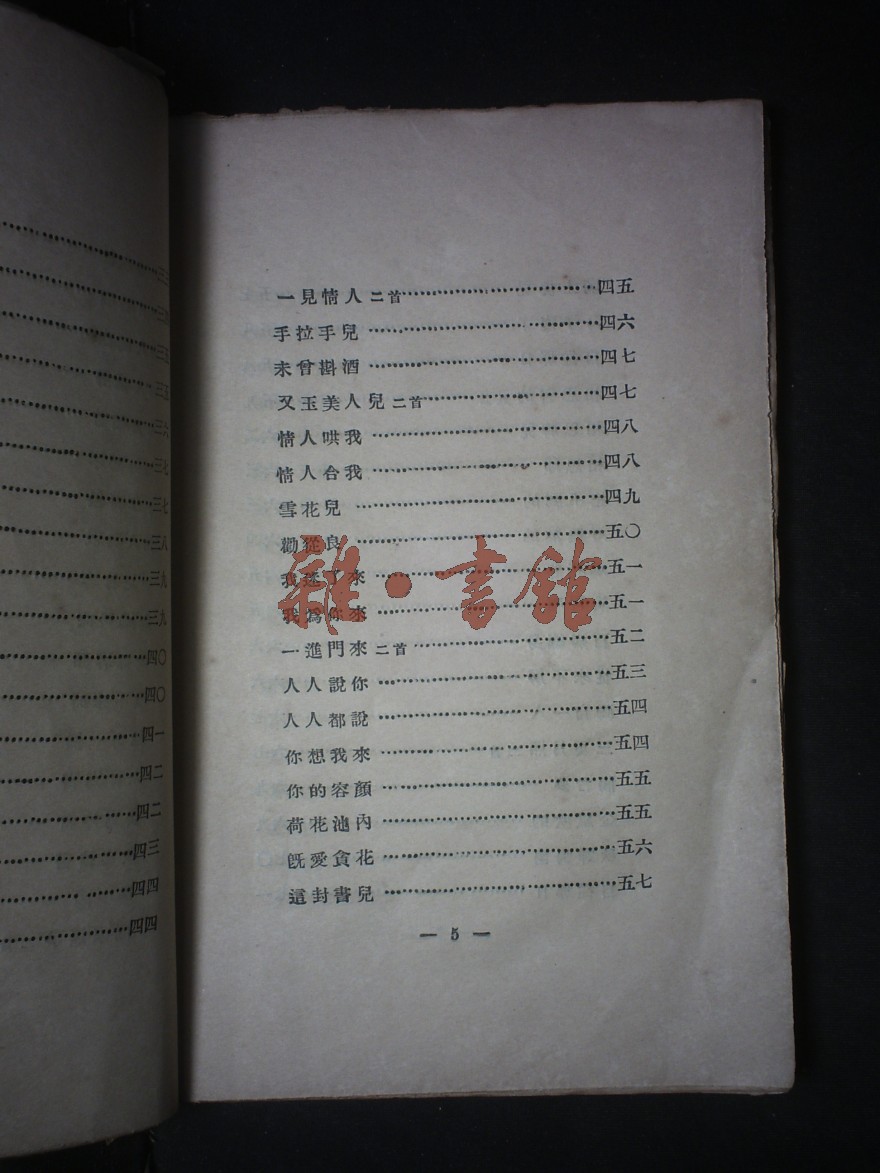 一見情人 二首 四五
手拉手兒 四六
未曾斟酒 四七
又玉美人兒 二首 四七
情人哄我 四八
情人合我 四八
雪花兒 四九
勸從良 五〇
我逃了來 五一
我爲你來 五一
一進門來 二首 五二
人人說你 五三
人人都說 五四
你想我來 五四
你的容顏 五五
荷花池內 五五
旣愛貪花 五六
這封書兒 五七
— 5 —
雜·書館
三五
三六
三七
三七
三八
三九
三九
四〇
四〇
四一
四二
四二
四三
四四
四四